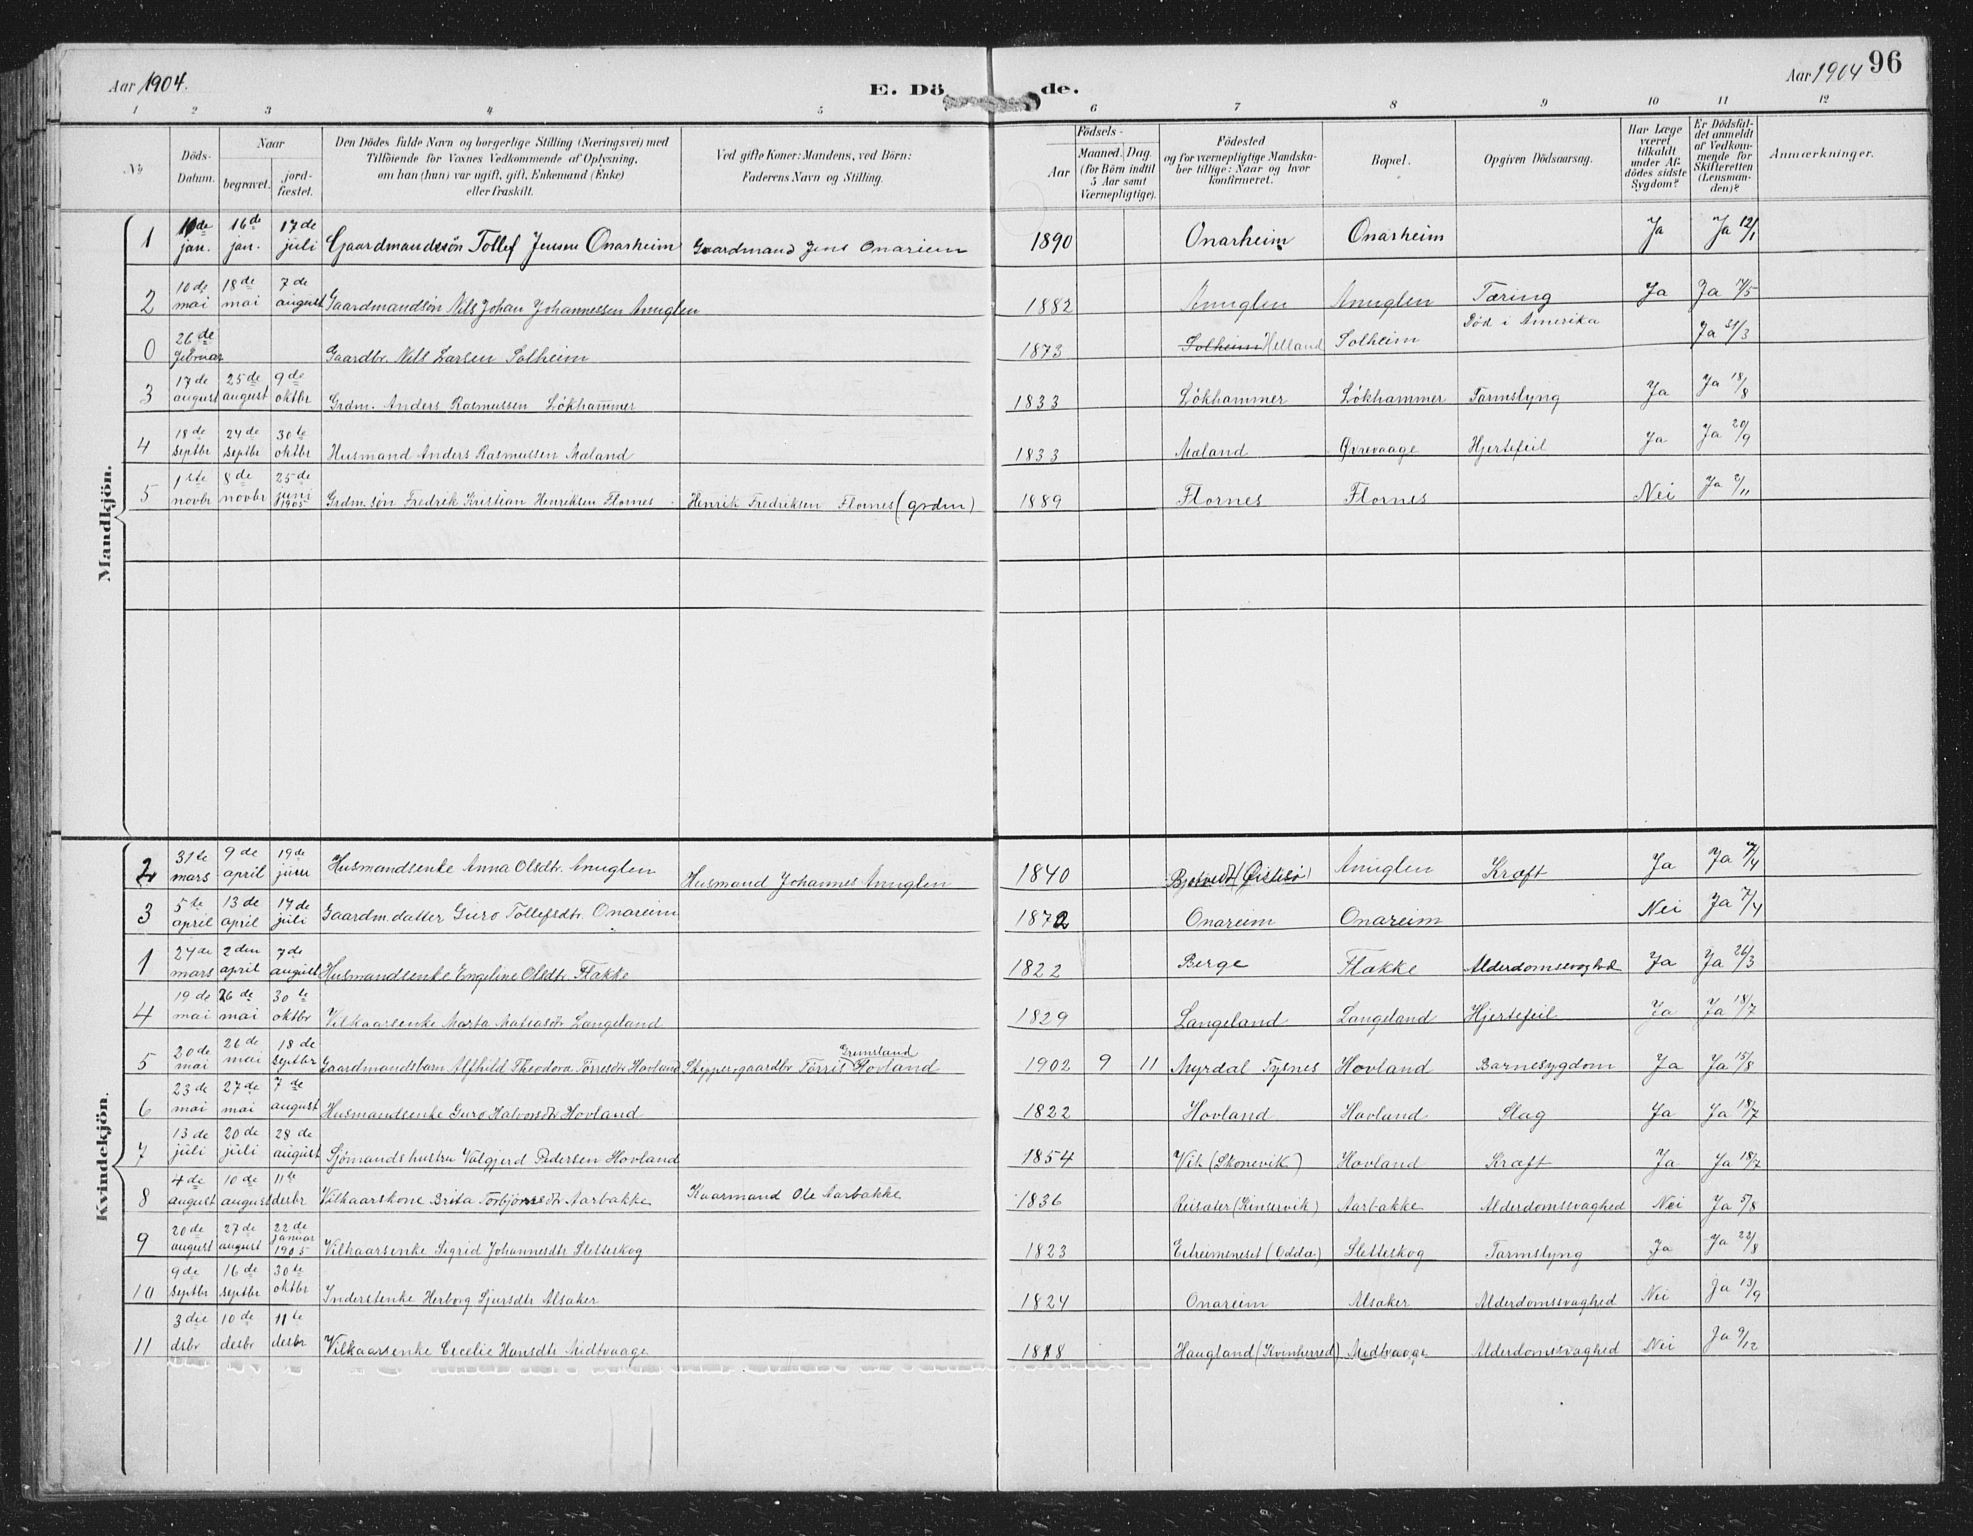 Aar 1904. E. Dö de. Aar 1904 96
1 2 3 4 5 6 7 8 9 10 11 12
No
Döds-Datum.
Naar
begravet.
jord-fæstet.
Den Dödes fulde Navn og borgerlige Stilling (Næringsvei) med
Tilföiende for Voxnes Vedkommende af Oplysning,
om han (hun) var ugift, gift, Enkemand (Enke)
eller fraskilt.
Ved gifte Koner: Mandens, ved Börn:
Faderens Navn og Stilling.
Födsels-
Aar
Maaned. Dag
(for Börn indtil
5 Aar samt
Værnepligtige).
Födested
og for værnepligtige Mandska-
ber tillige: Naar og hvor
konfirmeret.
Bopæl.
Opgiven Dödsaarsag.
Har Læge
været
tilkaldt
under Af-
dödes sidste
Sygdom?
Er Dödsfal-
det anmeldt
af Vedkom-
mende for
Skifteretten
(Lensman-
den)?
Anmærkninger.
Mandkjön.
1 10de jan. 16de jan. 17de juli Gaardmandssön Tollef Jensen Onarheim Gaardmand Jens Onareim 1890 Onarheim Onarheim Ja Ja 12/1
2 10de mai 18de mai 7de august Gaardmandsön Nils Johan Johannessen Anuglen 1882 Anuglen Anuglen Tæring Ja Ja 17/5
0 26de Februar Gaardbr. Nils Larsen Solheim 1873 Solheim Helland Solheim Död i Amerika Ja 31/3
3 17de august 25de august 9de oktbr Grdm. Anders Rasmussen Lökhammer 1833 Lökhammer Lökhammer Tarmslyng Ja Ja 18/8
4 18de septbr 24de septbr 30te oktbr Husmand Anders Rasmussen Maland 1833 Maland Øvrevaage Hjertefeil Ja Ja 20/9
5 1ste novbr 8de novbr 25de juni 1905 Grdm. søn Fredrik Kristian Henriksen Flornes Henrik Fredriksen Flornes (grdm) 1889 Flornes Flornes Nei Ja 2/11
Kvindekjön.
2 31te mars 9de april 19de juni Husmandsenke Anna Olsdtr. Anuglen Husmand Johannes Anuglen 1840 Anuglen Kræft Ja Ja 7/4
3 5te april 13de april 17de juli Gaardm.datter Guro Tollefsdtr. Onareim 1872 Onareim Onareim Nei Ja 7/4
1 24de mars 2den april 7de august Husmandsenke Engeline Olsdtr. Flakke 1822 Berge Flakke Alderdomssvaghed Ja Ja 26/3
4 19de mai 26de mai 30te oktbr Vilkaarsenke Marta Langeland 1829 Langeland Langeland Hjertefeil Ja Ja 18/7
5 20de mai 26de mai 18de septbr Gaardmandsbarn Alfhild Theodora Törresdtr Hovland Skipper-gaardbr Törris Grimsland Hovland 1902 9 11 Myrdal Tysnes Hovland Barnesygdom Ja Ja 15/8
6 23de mai 27de mai 7de august Husmandsenke Guro Halvorsdtr Hovland 1822 Hovland Hovland Slag Ja Ja 18/7
7 13de juli 20de juli 28de august Sjömandshustru Valgjerd Pedersen Hovland 1854 Vik (Skonevik) Hovland Kræft Ja Ja 18/7
8 4de august 10de august 11te desbr Vilkaarskone Brita Torbjörnsdtr Aarbakke Kaarmand Ole Aarbakke 1836 Reisæter (Kinservik) Aarbakke Alderdomssvaghed Nei Ja 5/8
9 20de august 27de august 22de januar 1905 Vilkaarsenke Sigrid Johannesdtr Sletteskog 1823 Eitheimsneset (Odda) Sletteskog Tarmslyng Ja Ja 22/8
10 9de septbr 16de septbr 30te oktbr Inderstenke Herborg Sjursdtr Alsaker 1824 Onareim Alsaker Alderdomssvaghed Nei Ja 13/9
11 3die dsbr 10de desbr 11te desbr Vilkaarsenke Cecelie Hansdtr Midtvaage 1818 Haugland (Kvinherred) Midtvaage Alderdomssvaghed Nei Ja 9/12